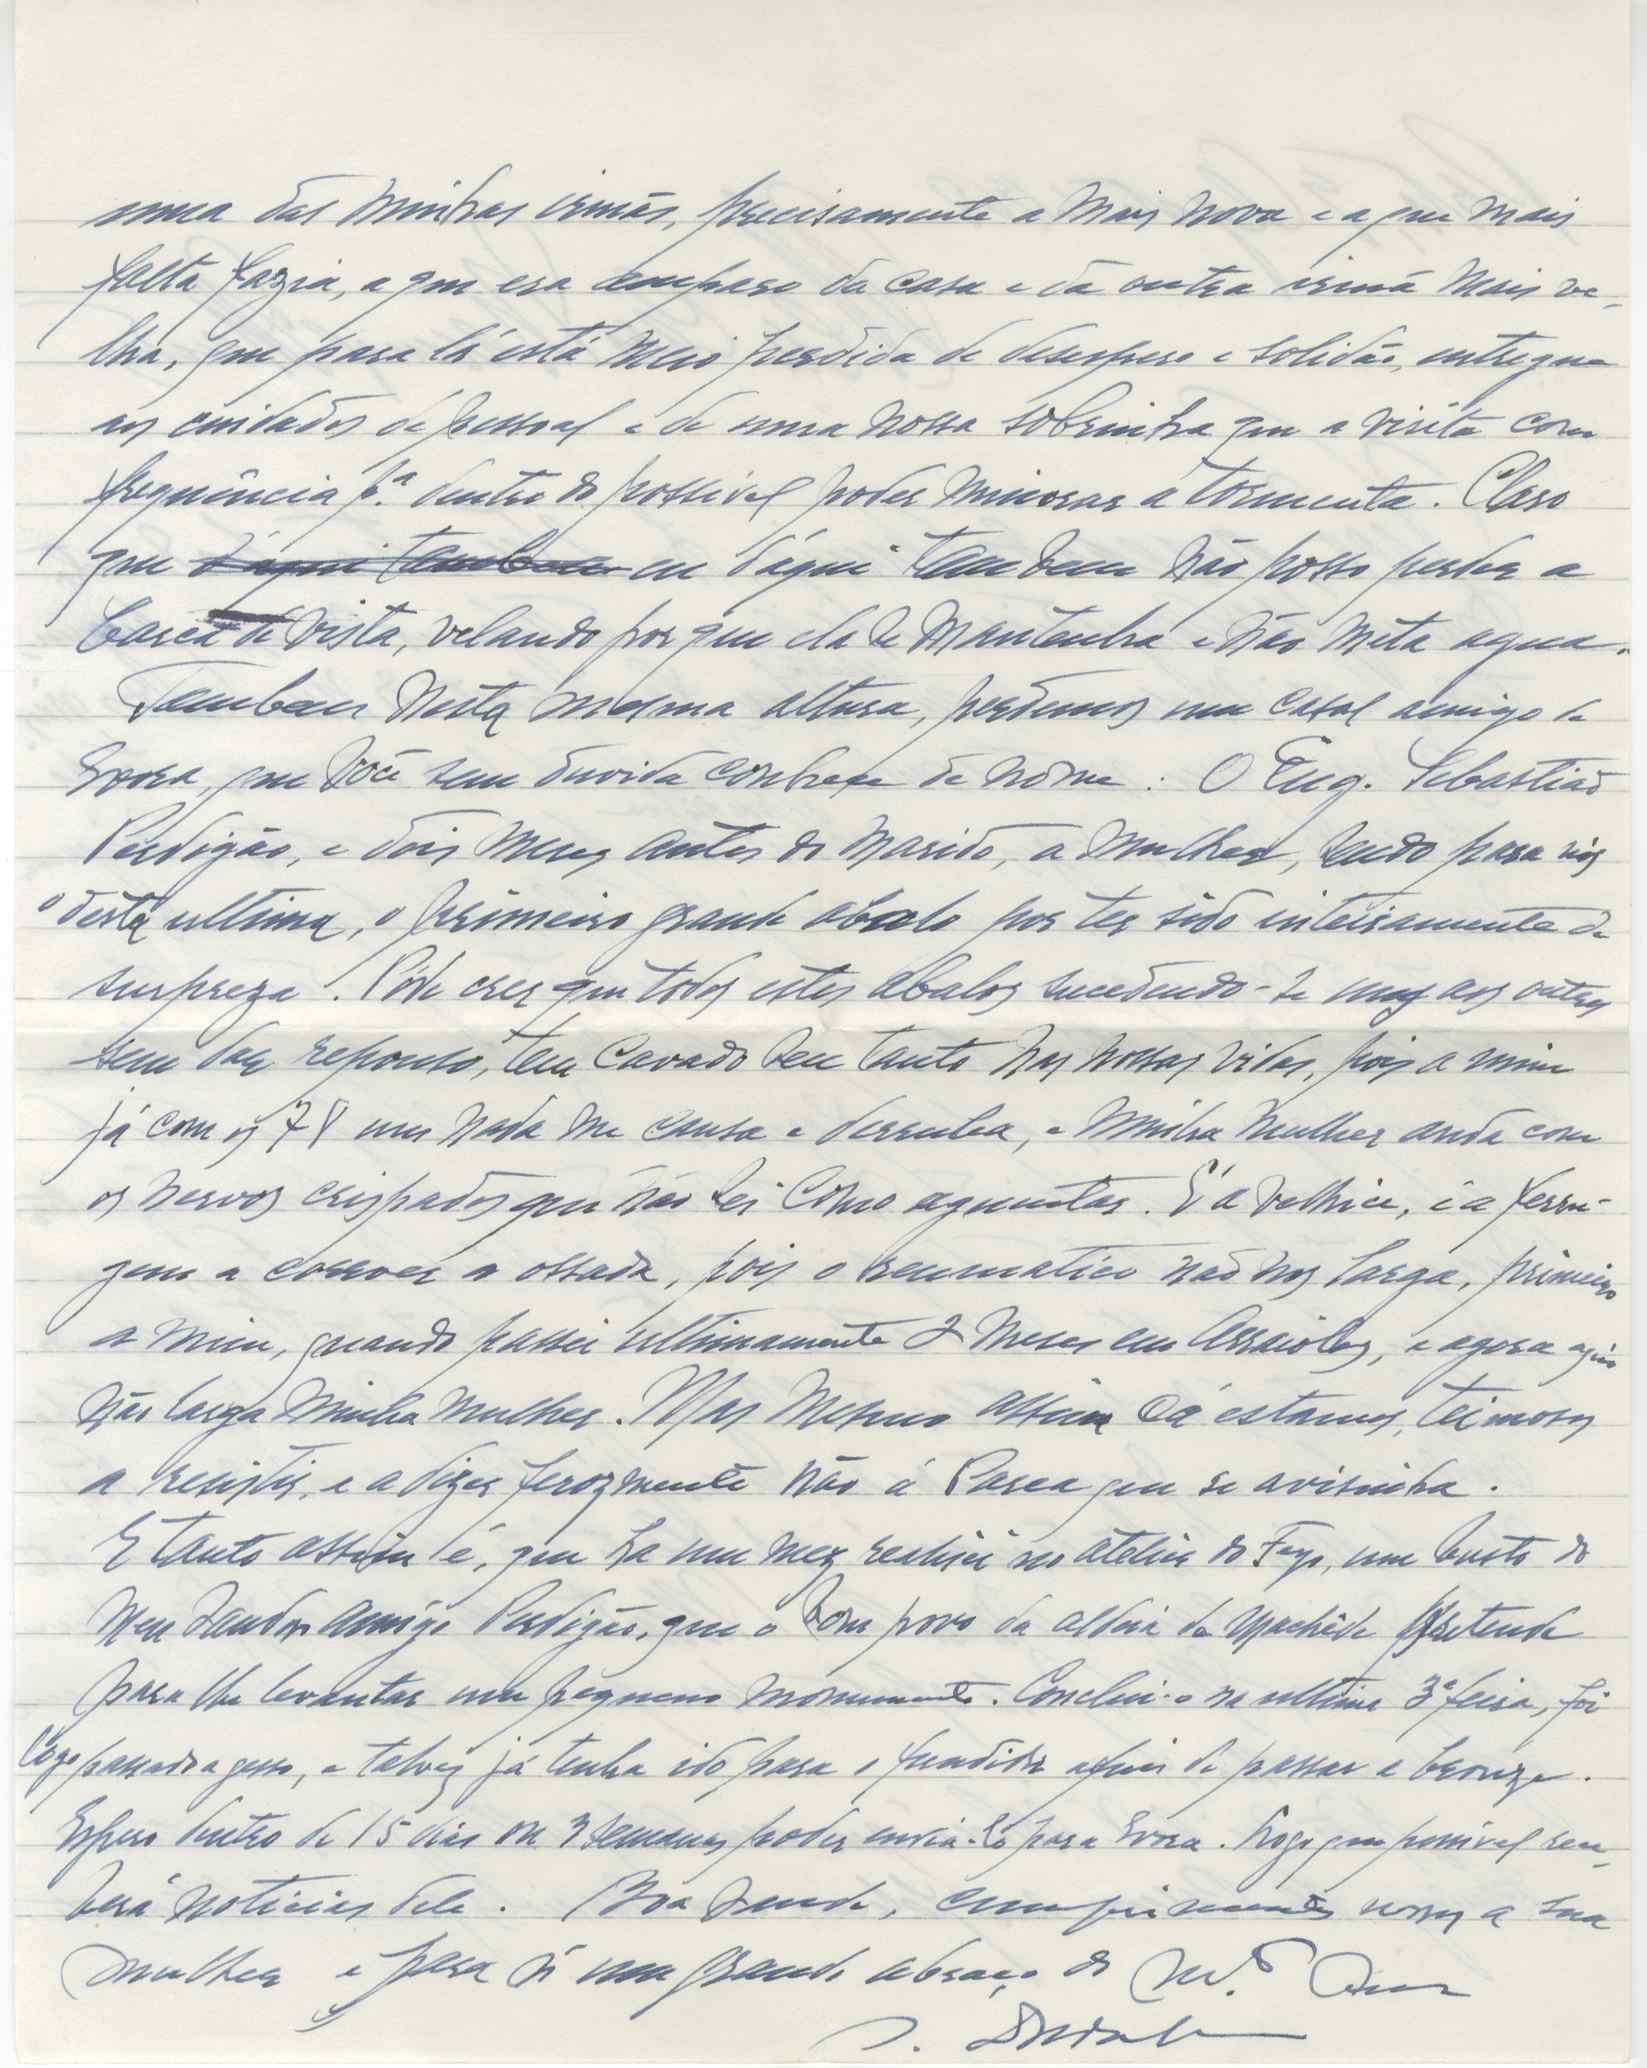 uma das minhas irmãs, precisamente a mais nova e a que mais
falta fazia, a que era amparo da casa e da outra irmã mais ve-
lha, que para lá está meio perdida de desespero e solidão, entregue
aos cuidados de pessoal e de uma nossa sobrinha que a visita com
frequência pª. dentro do possivel poder minorar a tormenta. Claro
que d'aqui tambem eu d'aqui tambem não posso perder a
barca de vista, velando por que ela se mantenha e não meta agua.
Tambem nesta mesma altura, perdemos um casal amigo de
Evora, que você sem duvida conhece de nome: O Eng. Sebastião
Perdigão, e dois meses antes do marido, a mulher, sendo para nós
o desta ultima, o primeiro grande abalo por ter sido inteiramente de
surpreza. Póde crer que todos estes abalos sucedendo-se uns aos outros
sem dar repouso, tem cavado seu tanto nas nossas vidas, pois a mim
já com os 78 um nada me cansa e derruba, e minha mulher anda com
os nervos crispados que não sei como aguentar. É a velhice, é a ferru-
gem a corroer a ossada, pois o reumatico não nos larga, primeiro
a mim, quando passei ultimamente 2 meses em Arraiolos, e agora aqui
não larga minha mulher. Mas mesmo assim cá estamos, teimosos
a resistir, e a dizer ferozmente não á Parca que se avisinha.
E tanto assim é, que ha um mez realizei no atelier do um busto do
meu saudoso amigo Perdigão, que o bom povo da aldeia de Machêde pretende
para lhe levantar um pequeno monumento. Conclui-o na ultima 3ª feira, foi
logo passado a gesso, e talvez já tenha ido para o fundidor afim de passar a bronze.
Espero dentro de 15 dias ou 3 semanas poder enviá-lo para Evora. Logo que possivel rece-
berá noticias dele. Boa saude, cumprimentos nossos a sua
mulher e para si um grande abraço do